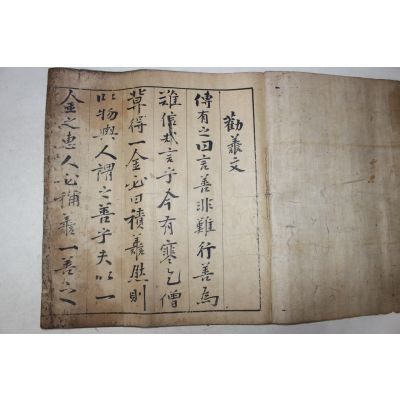 勸善文
傳有之曰言善非難行善爲
難信哉言乎今有寒乞僧
幕得一金必曰積善然則
以物與人謂之善乎夫以一
人金之惠人必稱善一善之人